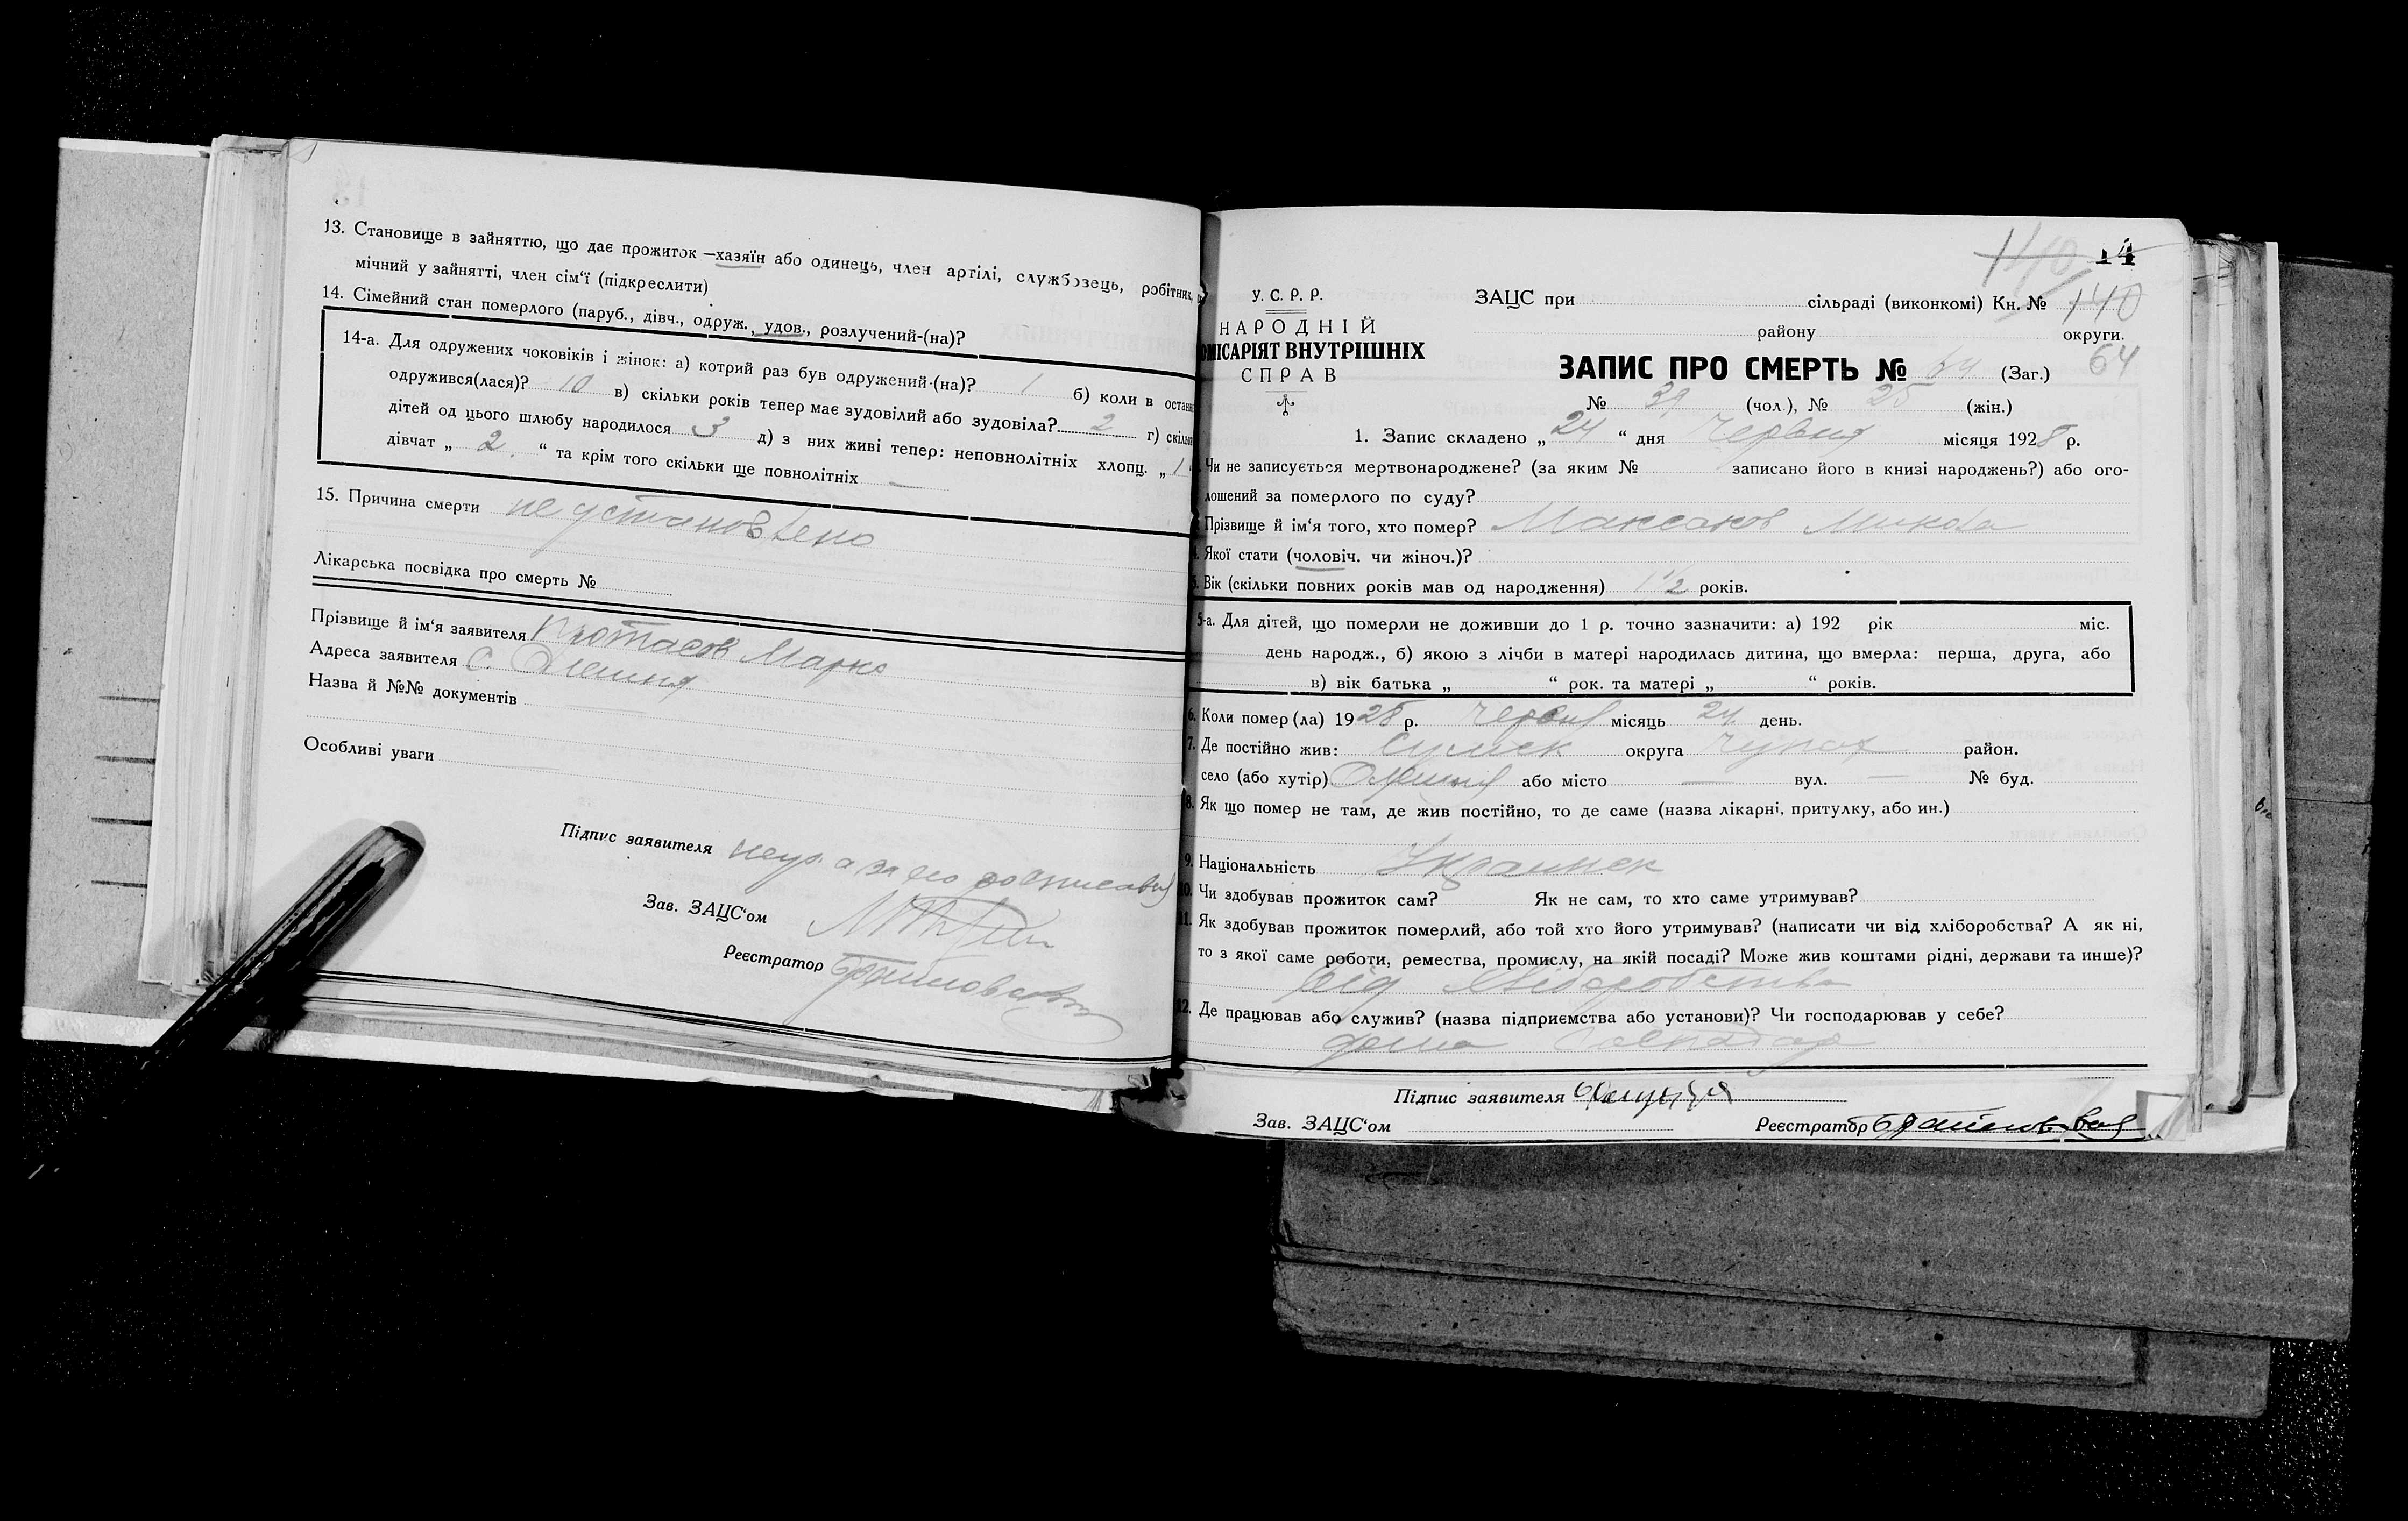 13. Становище в зайняттю, що дає прожиток —хазяїн або одинець, член артілі, службовець, робітник,
мічний у зайнятті, член сім‘ї (підкреслити)
14. Сімейний стан померлого (паруб., дівч., одруж., удов., розлучений-(на)?
14-а. Для одружених чоковіків і жінок: а) котрий раз був одружений-(на)? 1 б) коли в останн
одружився(лася)? 10 в) скільки років тепер має зудовілий або зудовіла? 2 г) скільк
дітей од цього шлюбу народилося 3 д) з них живі тепер: неповнолітніх хлопц. „ 1
дівчат „ 2 “ та крім того скільки ще повнолітніх —
15. Причина смерти не установлено
Лікарська посвідка про смерть №
Прізвище й ім‘я заявителя Протасов Марко
Адреса заявителя с. Олешня
Назва й №№ документів
Особливі уваги
Підпис заявителя неук. а за його росписався
Зав. ЗАЦС‘ом
Реєстратор
14
140
У. С. Р. Р.
НАРОДНІЙ
ОМІСАРІЯТ ВНУТРІШНІХ
СПРАВ
ЗАЦС при сільраді (виконкомі) Кн. № 140
району округи.
ЗАПИС ПРО СМЕРТЬ № 64 (Заг.) 64
№ 39 (чол.), № 25 (жін.)
1. Запис складено „ 24 “ дня Червня місяця 1928 р.
Чи не записується мертвонароджене? (за яким № записано його в книзі народжень?) або ого-
лошений за померлого по суду?
Прізвище й ім‘я того, хто помер? Максаков Микола
4. Якої стати (чоловіч. чи жіноч.)?
5. Вік (скільки повних років мав од народження) 1 1/2 років.
5-а. Для дітей, що померли не доживши до 1 р. точно зазначити: а) 192 рік міс.
день народж., б) якою з лічби в матері народилась дитина, що вмерла: перша, друга, або
в) вік батька „ “ рок. та матері „ “ років.
6. Коли помер (ла) 1928 р. Червня місяць 24 день.
7. Де постійно жив: Сумск округа Чупах район.
село (або хутір) Олешня або місто — вул. — № буд.
8. Як що помер не там, де жив постійно, то де саме (назва лікарні, притулку, або ин.)
9. Національність Украинец
10. Чи здобував прожиток сам? Як не сам, то хто саме утримував?
11. Як здобував прожиток померлий, або той хто його утримував? (написати чи від хліборобства? А як ні,
то з якої саме роботи, ремества, промислу, на якій посаді? Може жив коштами рідні, держави та инше)?
від хліборобства
12. Де працював або служив? (назва підприємства або установи)? Чи господарював у себе?
дома
Підпис заявителя
Зав. ЗАЦС‘ом Реєстратор